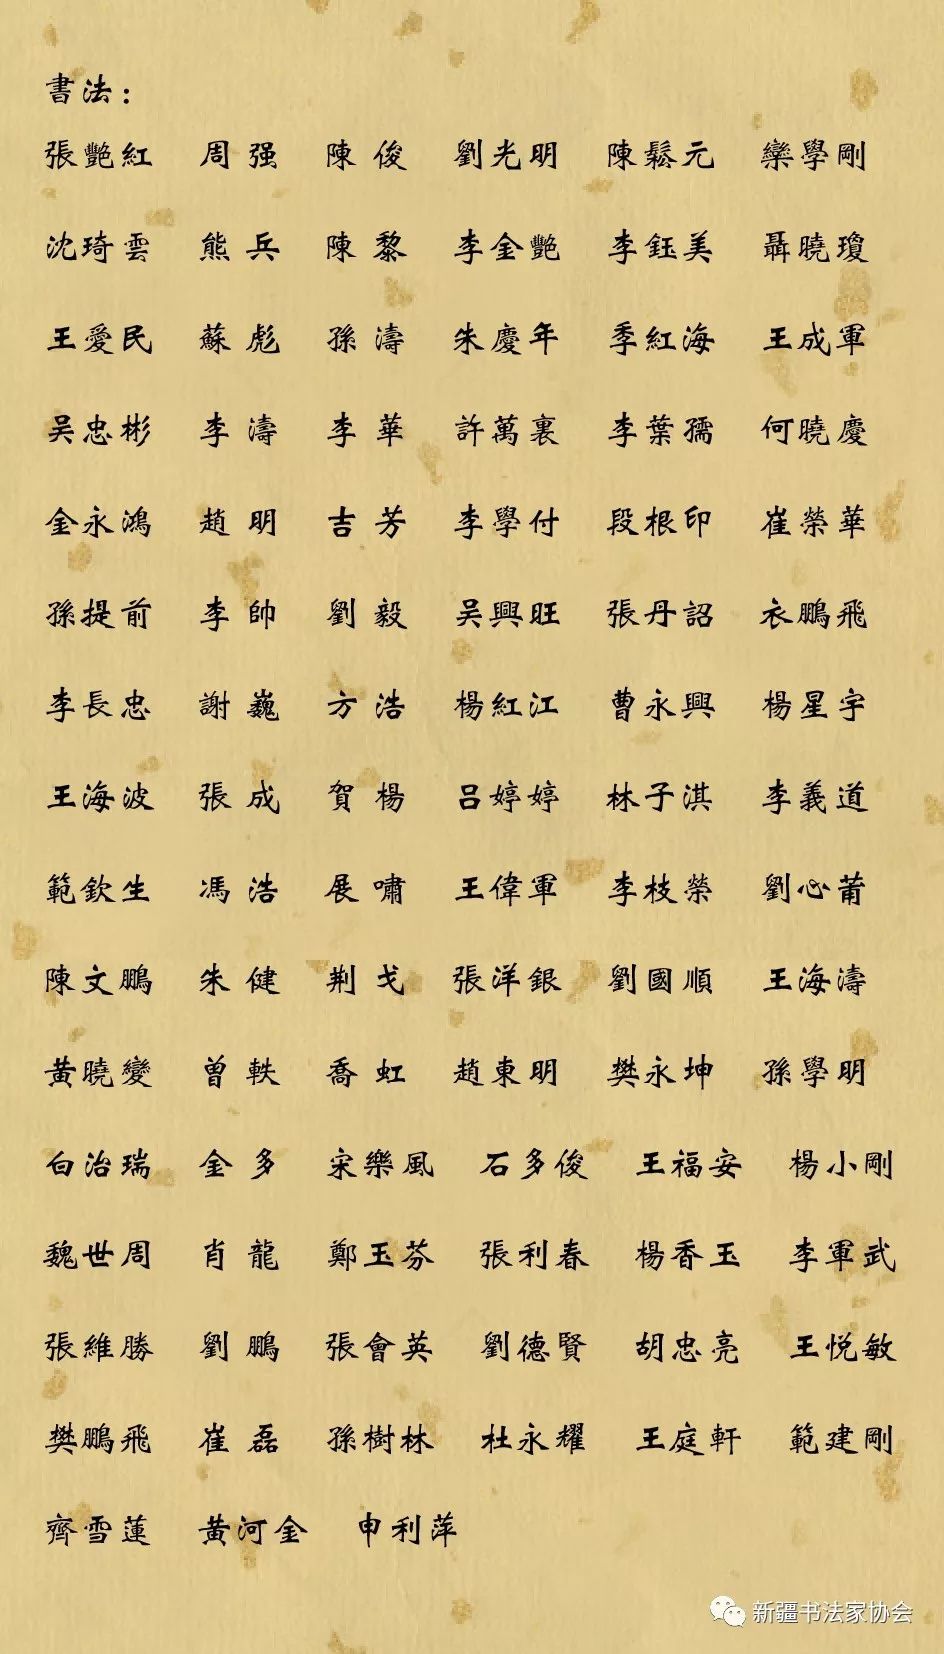 書法：
張艷紅 周强 陳俊 劉光明 陳鬆元 欒學剛
沈琦雲 熊兵 陳黎 李金艷 李鈺美 聶曉瓊
王愛民 蘇彪 孫濤 朱慶年 季紅海 王成軍
吴忠彬 李濤 李華 許萬裏 李葉孺 何曉慶
金永鴻 趙明 吉芳 李學付 段根印 崔榮華
孫提前 李帥 劉毅 吴興旺 張丹詔 衣鵬飛
李長忠 謝巍 方浩 楊紅江 曹永興 楊星宇
王海波 張成 賀楊 吕婷婷 林子淇 李義道
範欽生 馮浩 展嘯 王偉軍 李枝榮 劉心莆
陳文鵬 朱健 荆戈 張洋銀 劉國順 王海濤
黄曉變 曾軼 喬虹 趙東明 樊永坤 孫學明
白治瑞 金多 宋樂風 石多俊 王福安 楊小剛
魏世周 肖龍 鄭玉芬 張利春 楊香玉 李軍武
張維勝 劉鵬 張會英 劉德賢 胡忠亮 王悦敏
樊鵬飛 崔磊 孫樹林 杜永耀 王庭軒 範建剛
齊雪蓮 黄河金 申利萍
新疆书法家协会